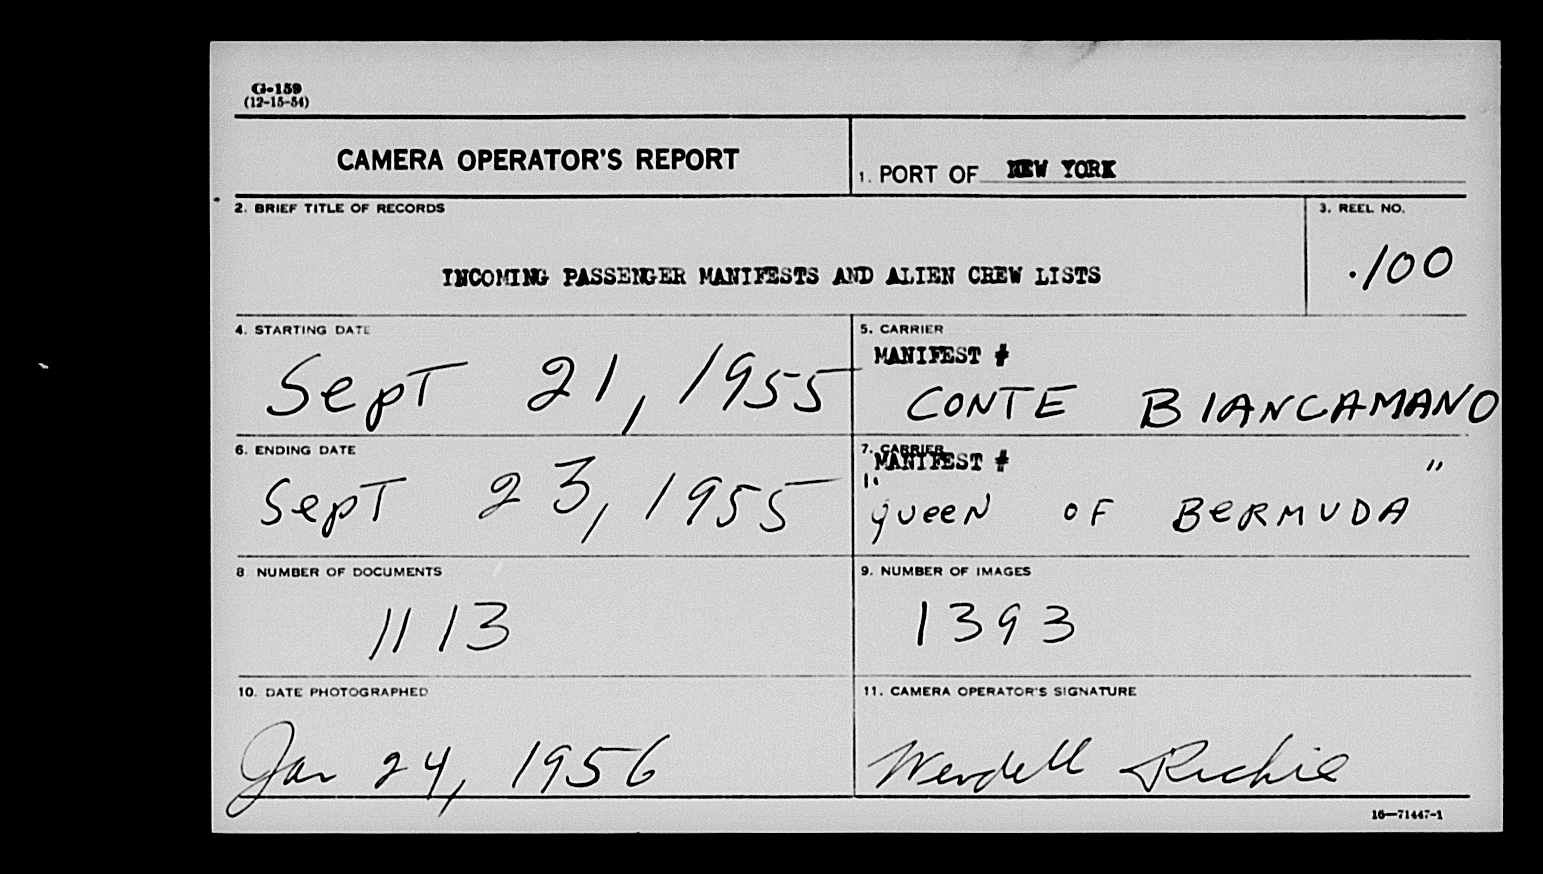 G-159
(12-15-54)
CAMERA OPERATOR'S REPORT
1. PORT OF NEW YORK
2. BRIEF TITLE OF RECORDS
INCOMING PASSENGER MANIFESTS AND ALIEN CREW LISTS
3. REEL NO.
.100
4. STARTING DATE
Sept 21, 1955
5. CARRIER
MANIFEST #
CONTE BIANCAMANO
6. ENDING DATE
Sept 23, 1955
7. CARRIER
MANIFEST #
"Queen OF BeRMUDA"
8 NUMBER OF DOCUMENTS
1113
9. NUMBER OF IMAGES
1393
10. DATE PHOTOGRAPHED
Jan 24, 1956
11. CAMERA OPERATOR'S SIGNATURE
Wendell Richie
16—71447-1